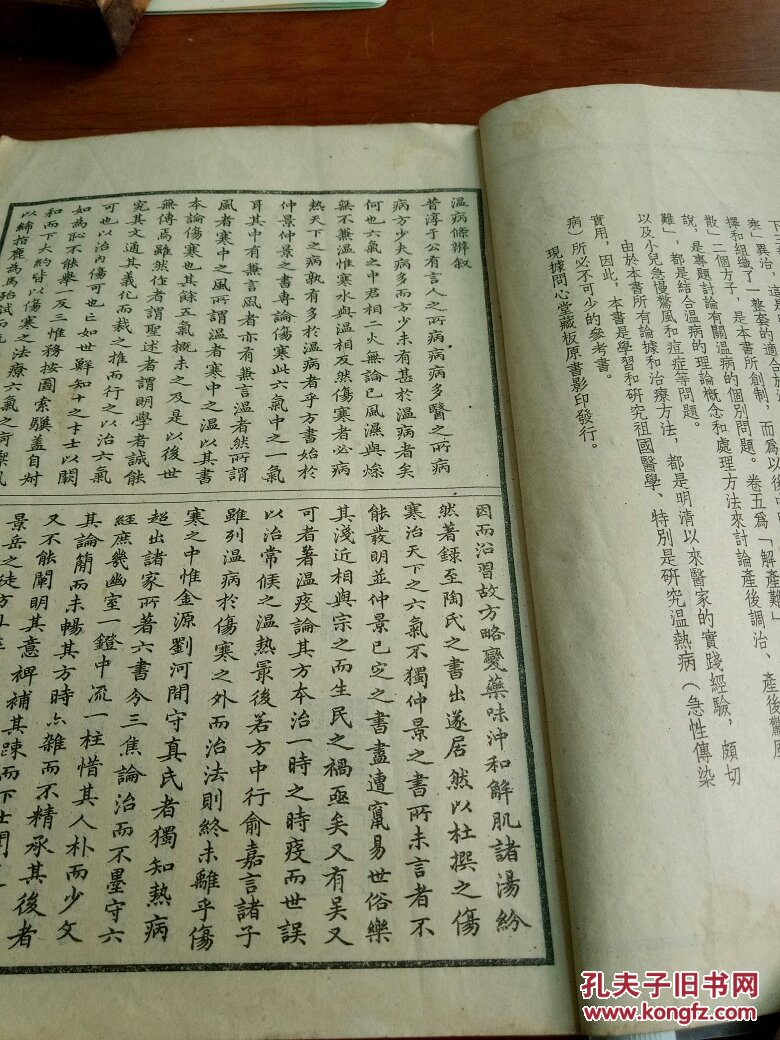 實用，因此，本書是學習和研究祖國醫學、特別是研究溫熱病（急性傳染
病）所必不可少的參考書。
現據問心堂藏板原書影印發行。
以及小兒急慢驚風和痘症等問題。
由於本書所有論據和治療方法，都是明清以來醫家的實踐經驗，頗切
難」，都是結合溫病的理論概念和處理方法來討論產後調治、產後驚風
說，是專題討論有關溫病的個別問題。卷五爲「解產難」
散」二個方子，是本書所創制，而爲以後
擇和組織了一整套的適合
寒」異治
溫病條辨叙
昔淳于公有言人之所病病病多醫之所病
病方少夫病多而方少未有甚於溫病者矣
何也六氣之中君相二火無論已風濕與燥
無不兼溫惟寒水與溫相反然傷寒者必病
熱天下之病孰有多於溫病者乎方書始於
仲景仲景之書專論傷寒此六氣中之一氣
耳其中有兼言風者亦有兼言溫者然所謂
風者寒中之風所謂溫者寒中之溫以其書
本論傷寒也其餘五氣概未之及是以後世
無傳焉雖然作者謂聖述者謂明學者誠能
究其文通其義化而裁之推而行之以治六氣
可也以治內傷可也亡如世鮮知十之才士以闕
如為恥不能舉一反三惟務按圖索驥蓋自叔
和而下大約皆以傷寒之法療六氣之疴禦風
以絺指鹿為馬殆試而
因而沿習故方略變藥味沖和解肌諸湯紛
然著錄至陶氏之書出遂居然以杜撰之傷
寒治天下之六氣不獨仲景之書所未言者不
能發明並仲景已定之書盡遭竄易世俗樂
其淺近相與宗之而生民之禍亟矣又有吴又
可者著溫疫論其方本治一時之時疫而世誤
以治常候之温熱最後若方中行俞嘉言諸子
雖列温病於傷寒之外而治法則終未離乎傷
寒之中惟金源劉河間守真氏者獨知熱病
超出諸家所著六書分三焦論治而不墨守六
經庶幾幽室一鐙中流一柱惜其人朴而少文
其論簡而未暢其方時亦雜而不精承其後者
又不能闡明其意裨補其疎而下士聞
景岳之徒方且
孔夫子旧书网
www.kongfz.com